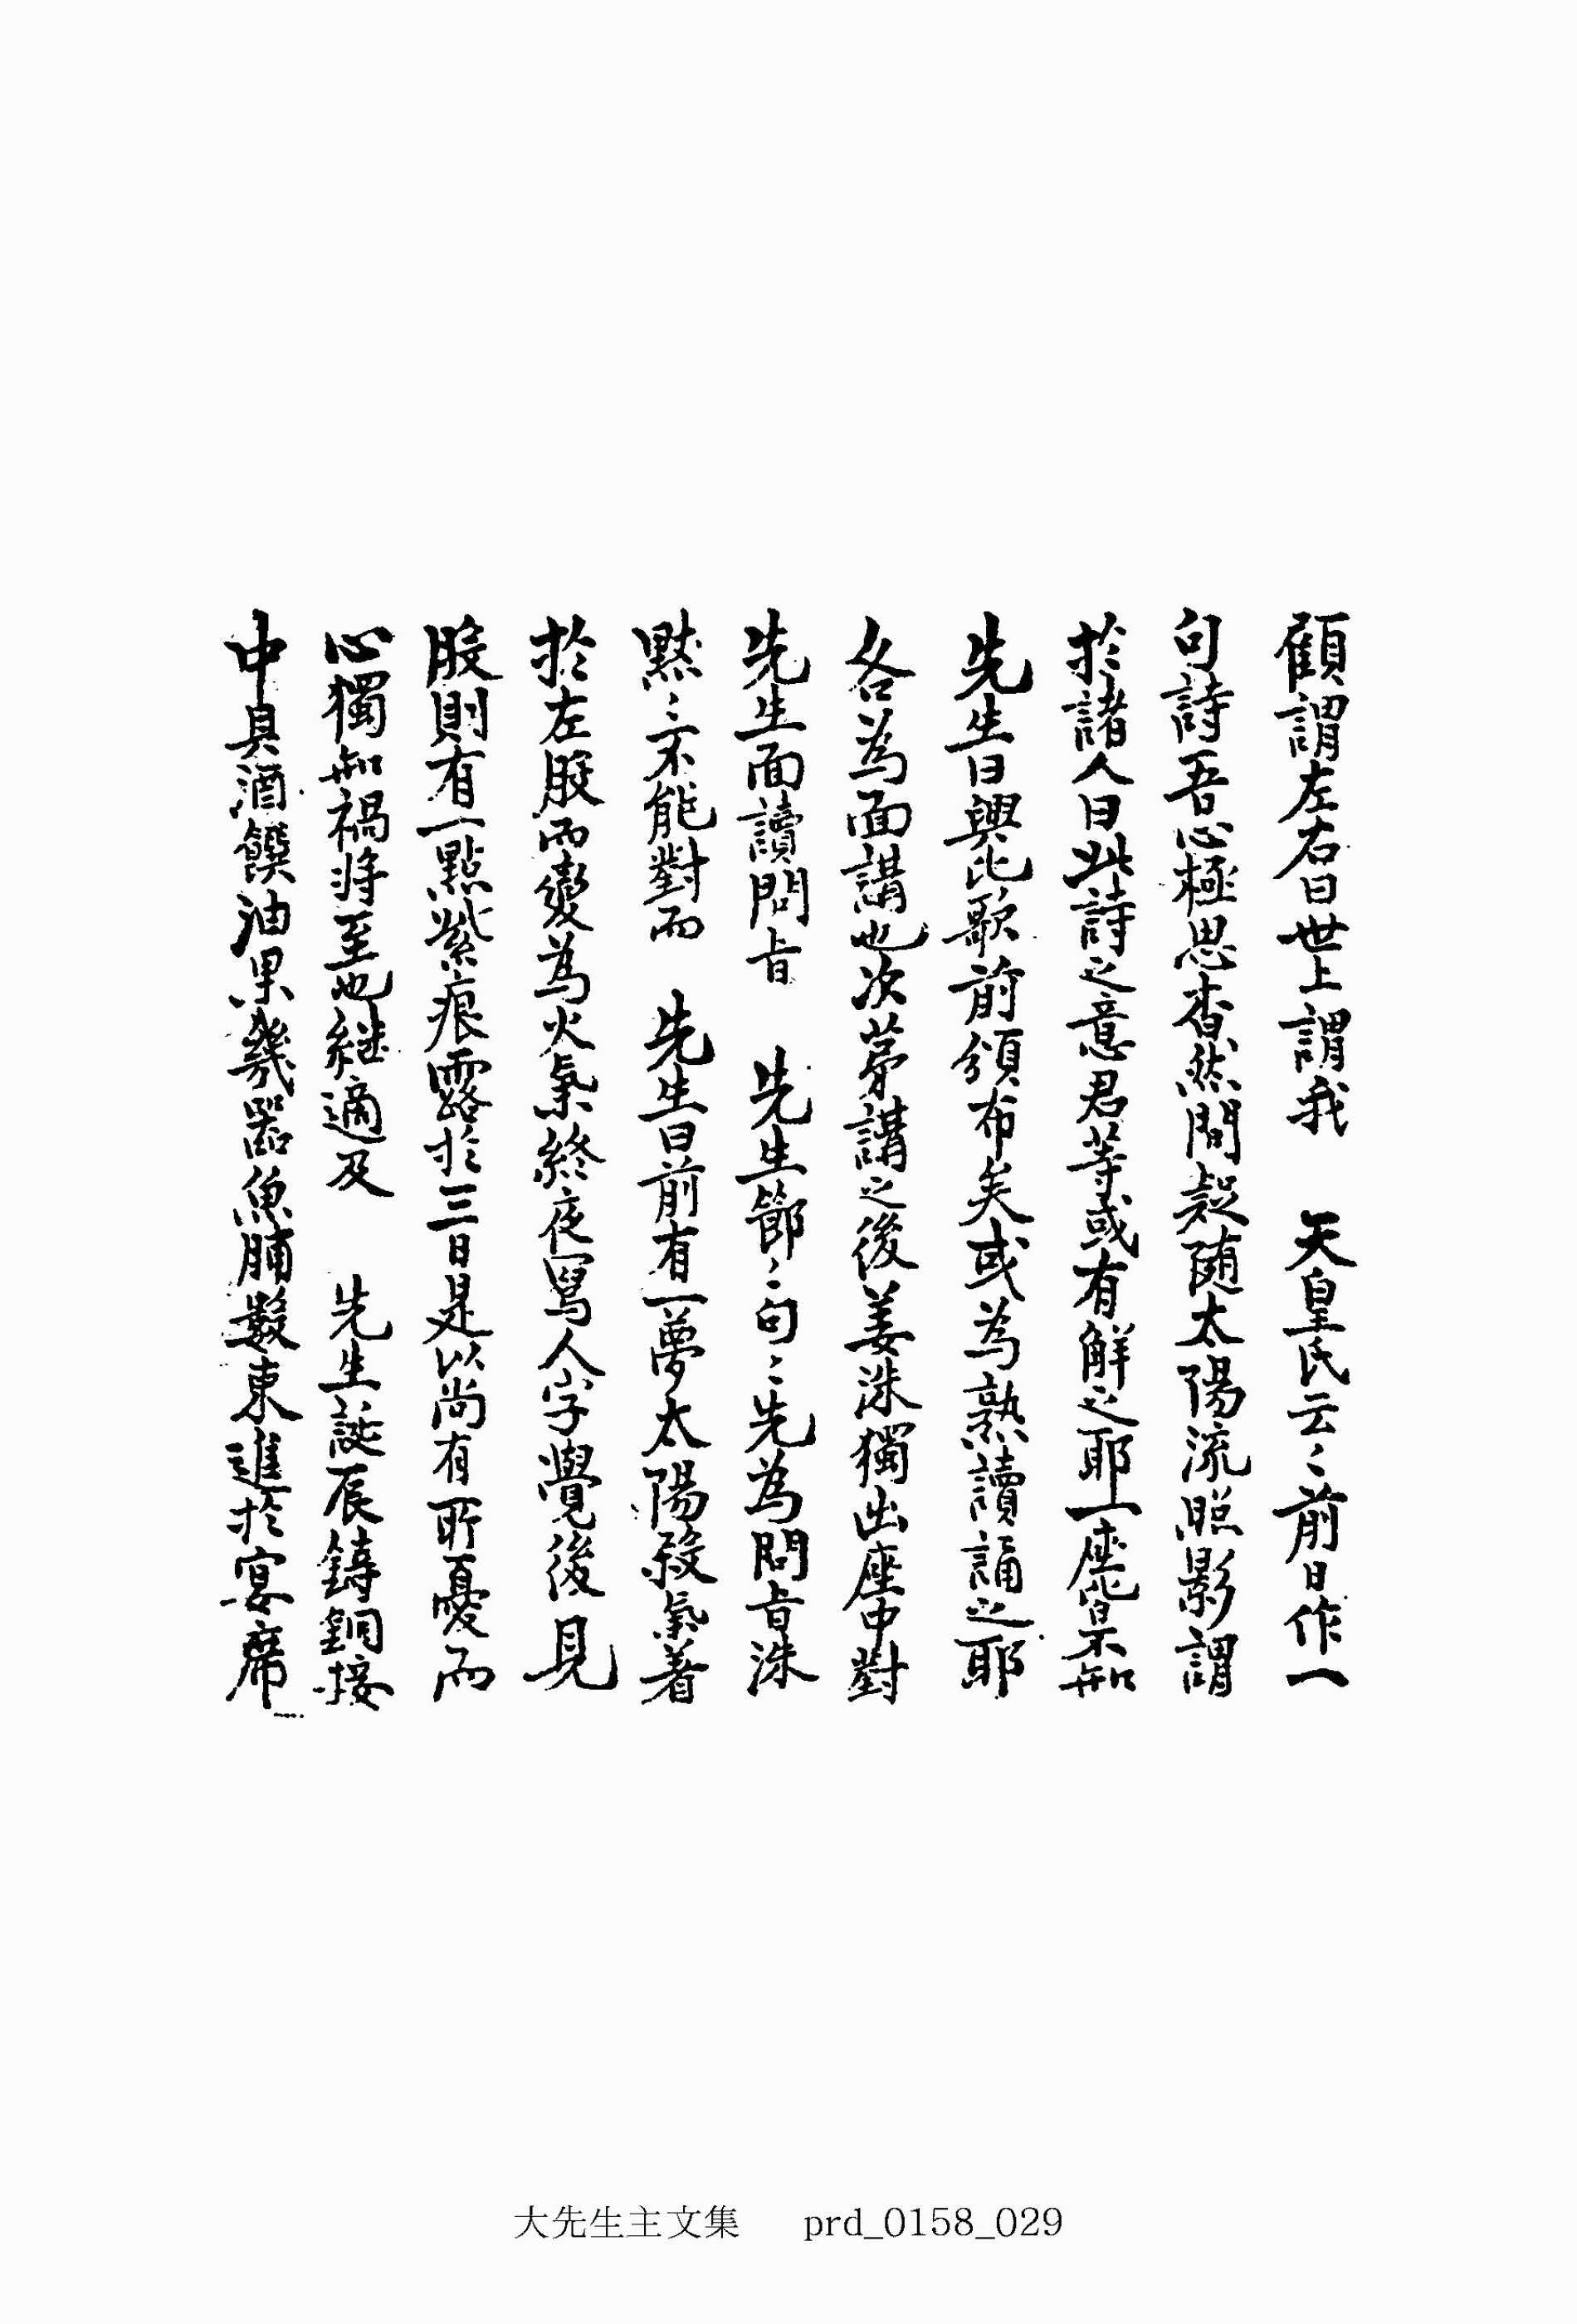 顧謂左右曰世上謂我　天皇氏云〻前日作一
句詩吾心極思杳然間疑随太陽流照影謂
於諸人曰此詩之意君等或有解之耶一座皆不知
先生曰興比歌前頒布矣或為熟讀誦之耶
各為面講也次苐講之後姜洙獨出座中對
先生面讀問旨　先生節〻句〻先為問旨洙
黙〻不能對而　先生曰前有一夢太陽殺氣着
於左股而變為火氣終夜寫人字覺後見
股則有一點紫痕露於三日是以尚有所憂而
心獨知禍将至也継適及　先生誕辰鑄銅接
中具酒饌油果幾器魚脯數束進於宴席
大先生主文集 prd_0158_029